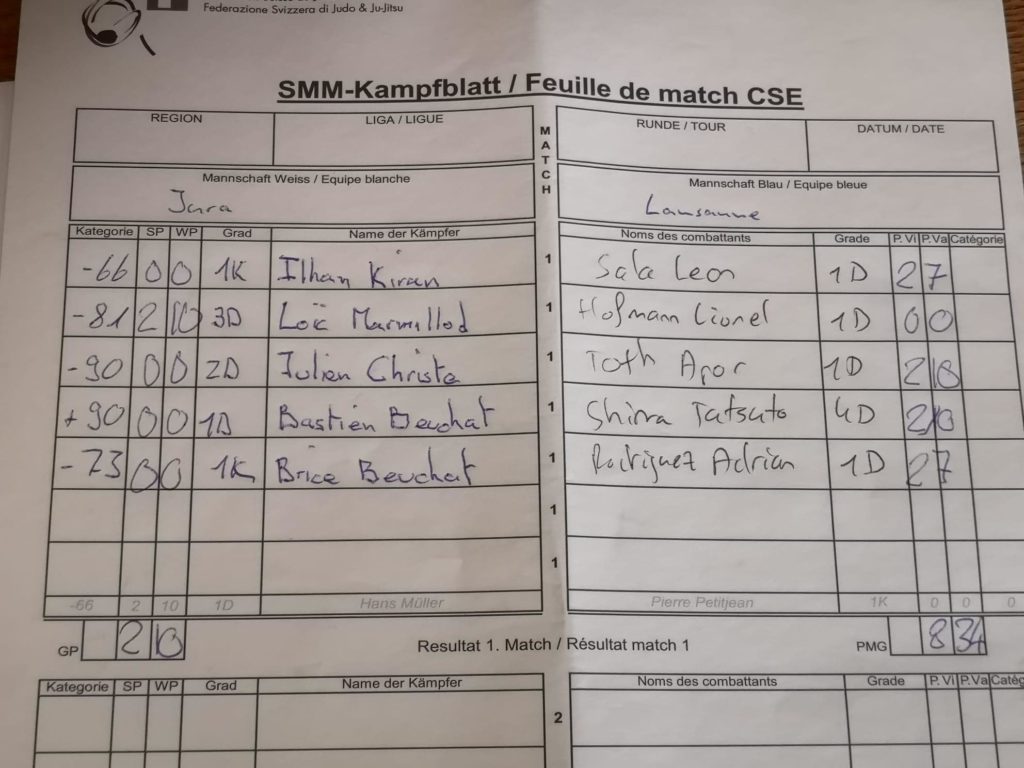 Federazione Svizzera di Judo & Ju-Jitsu
SMM-Kampfblatt / Feuille de match CSE
REGION LIGA / LIGUE MATCH RUNDE / TOUR DATUM / DATE
Mannschaft Weiss / Equipe blanche Mannschaft Blau / Equipe bleue
Jura Lausanne
Kategorie SP WP Grad Name der Kämpfer Noms des combattants Grade P.Vi P.Va Catégorie
-66 0 0 1K Ilhan Kiran 1 Sala Leon 1D 2 7
-81 2 10 3D Loïc Marmillod 1 Hofmann Lionel 1D 0 0
-90 0 0 2D Julien Christe 1 Toth Apor 1D 2 10
+90 0 0 1D Bastien Beuchat 1 Tatsuto 4D 2 10
-73 0 0 1K Brice Beuchat 1 Rodriguez Adrian 1D 2 7
1
1
-66 2 10 1D Hans Müller Pierre Petitjean 1K 0 0 0
GP 2 10 Resultat 1. Match / Résultat match 1 PMG 8 34
Kategorie SP WP Grad Name der Kämpfer Noms des combattants Grade P.Vi P.Va Catég
2